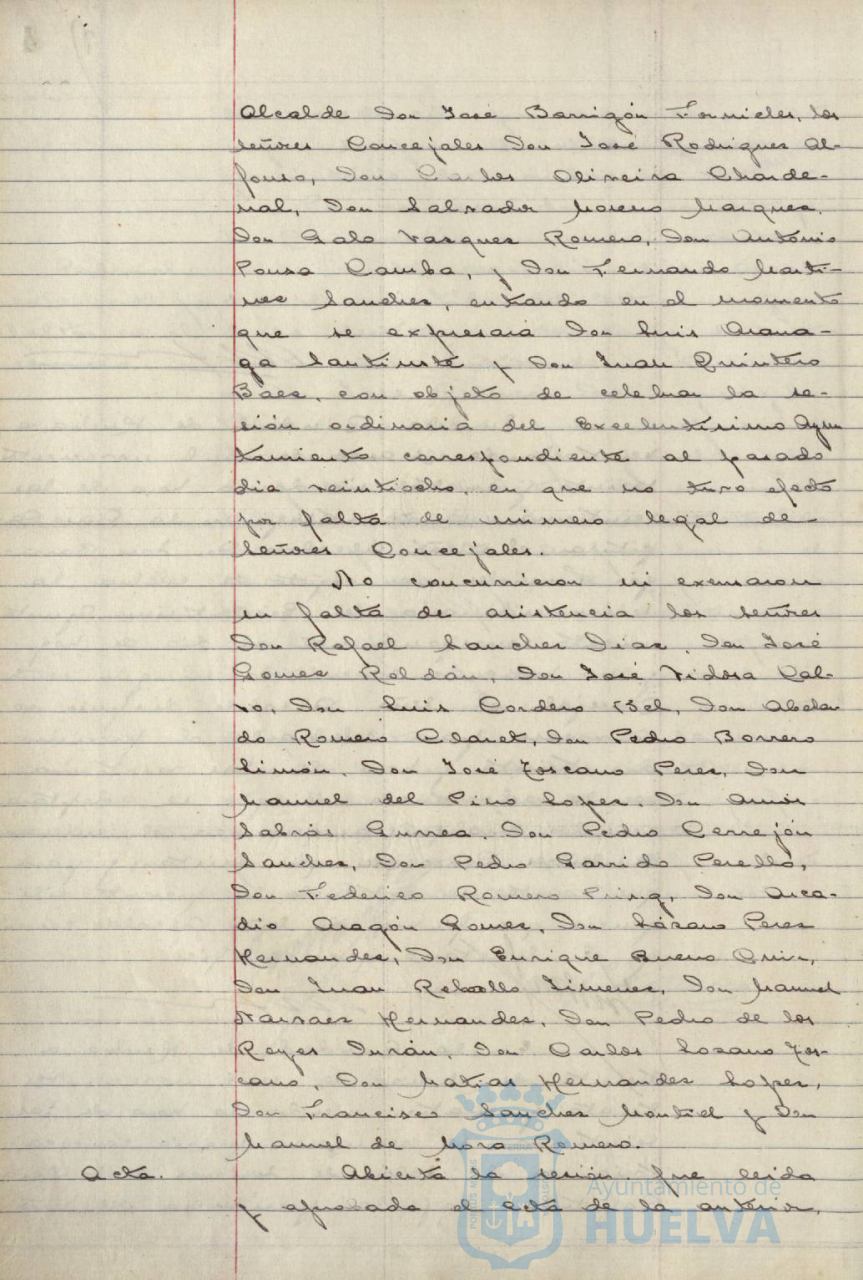 Alcalde Don José Barrigón Fornieles, los
señores Concejales Don José Rodrigues Al-
fonso, Don Carlos Oliveira Chande-
nal, Don Salvador Moreno Marques,
Don Galo Vasques Romero, Don António
Pousa Camba, y Don Fernando Marti-
nes Sanches, entando en el momento
que se expresará Don Luis
ga y Don Juan Quintero
Báes, con objeto de celebrar la se-
sión ordinaria del Excelentísimo Ayun
tamiento correspondiente al pasado
dia veintiocho, en que no tuvo efecto
por falta de número legal de-
señores Concejales.
No concurrieron ni excusaron
su falta de asistencia los señores
Don Rafael Sanches Dias, Don José
Gomes Roldán, Don José Vidosa Cal-
vo, Don Luis Cordero Bel, Don Abelar
do Romero Claret, Don Pedro Borrero
Limón, Don José Toscano Peres, Don
Manuel del Pino Lopes, Don Amós
Sabrás Gurrea, Don Pedro Cerrejón
Sanches, Don Pedro Garrido Perelló,
Don Federico Romero Don Arca-
dio Aragón Gomes, Don Lázaro Peres
Hernandes, Don Enrique Bueno Crus,
Don Juan Rebollo Jimenes, Don Manuel
Narvaes Hernandes, Don Pedro de los
Reyes Durán, Don Carlos Lozano Tos-
cano, Don Matias Hernandes Lopes,
Don Francisco Sanches Montiel y Don
Manuel de Mora Romero.
Acta. Abierta la sesión fue leida
y aprobada el acta de la anterior,
Ayuntamiento de
HUELVA